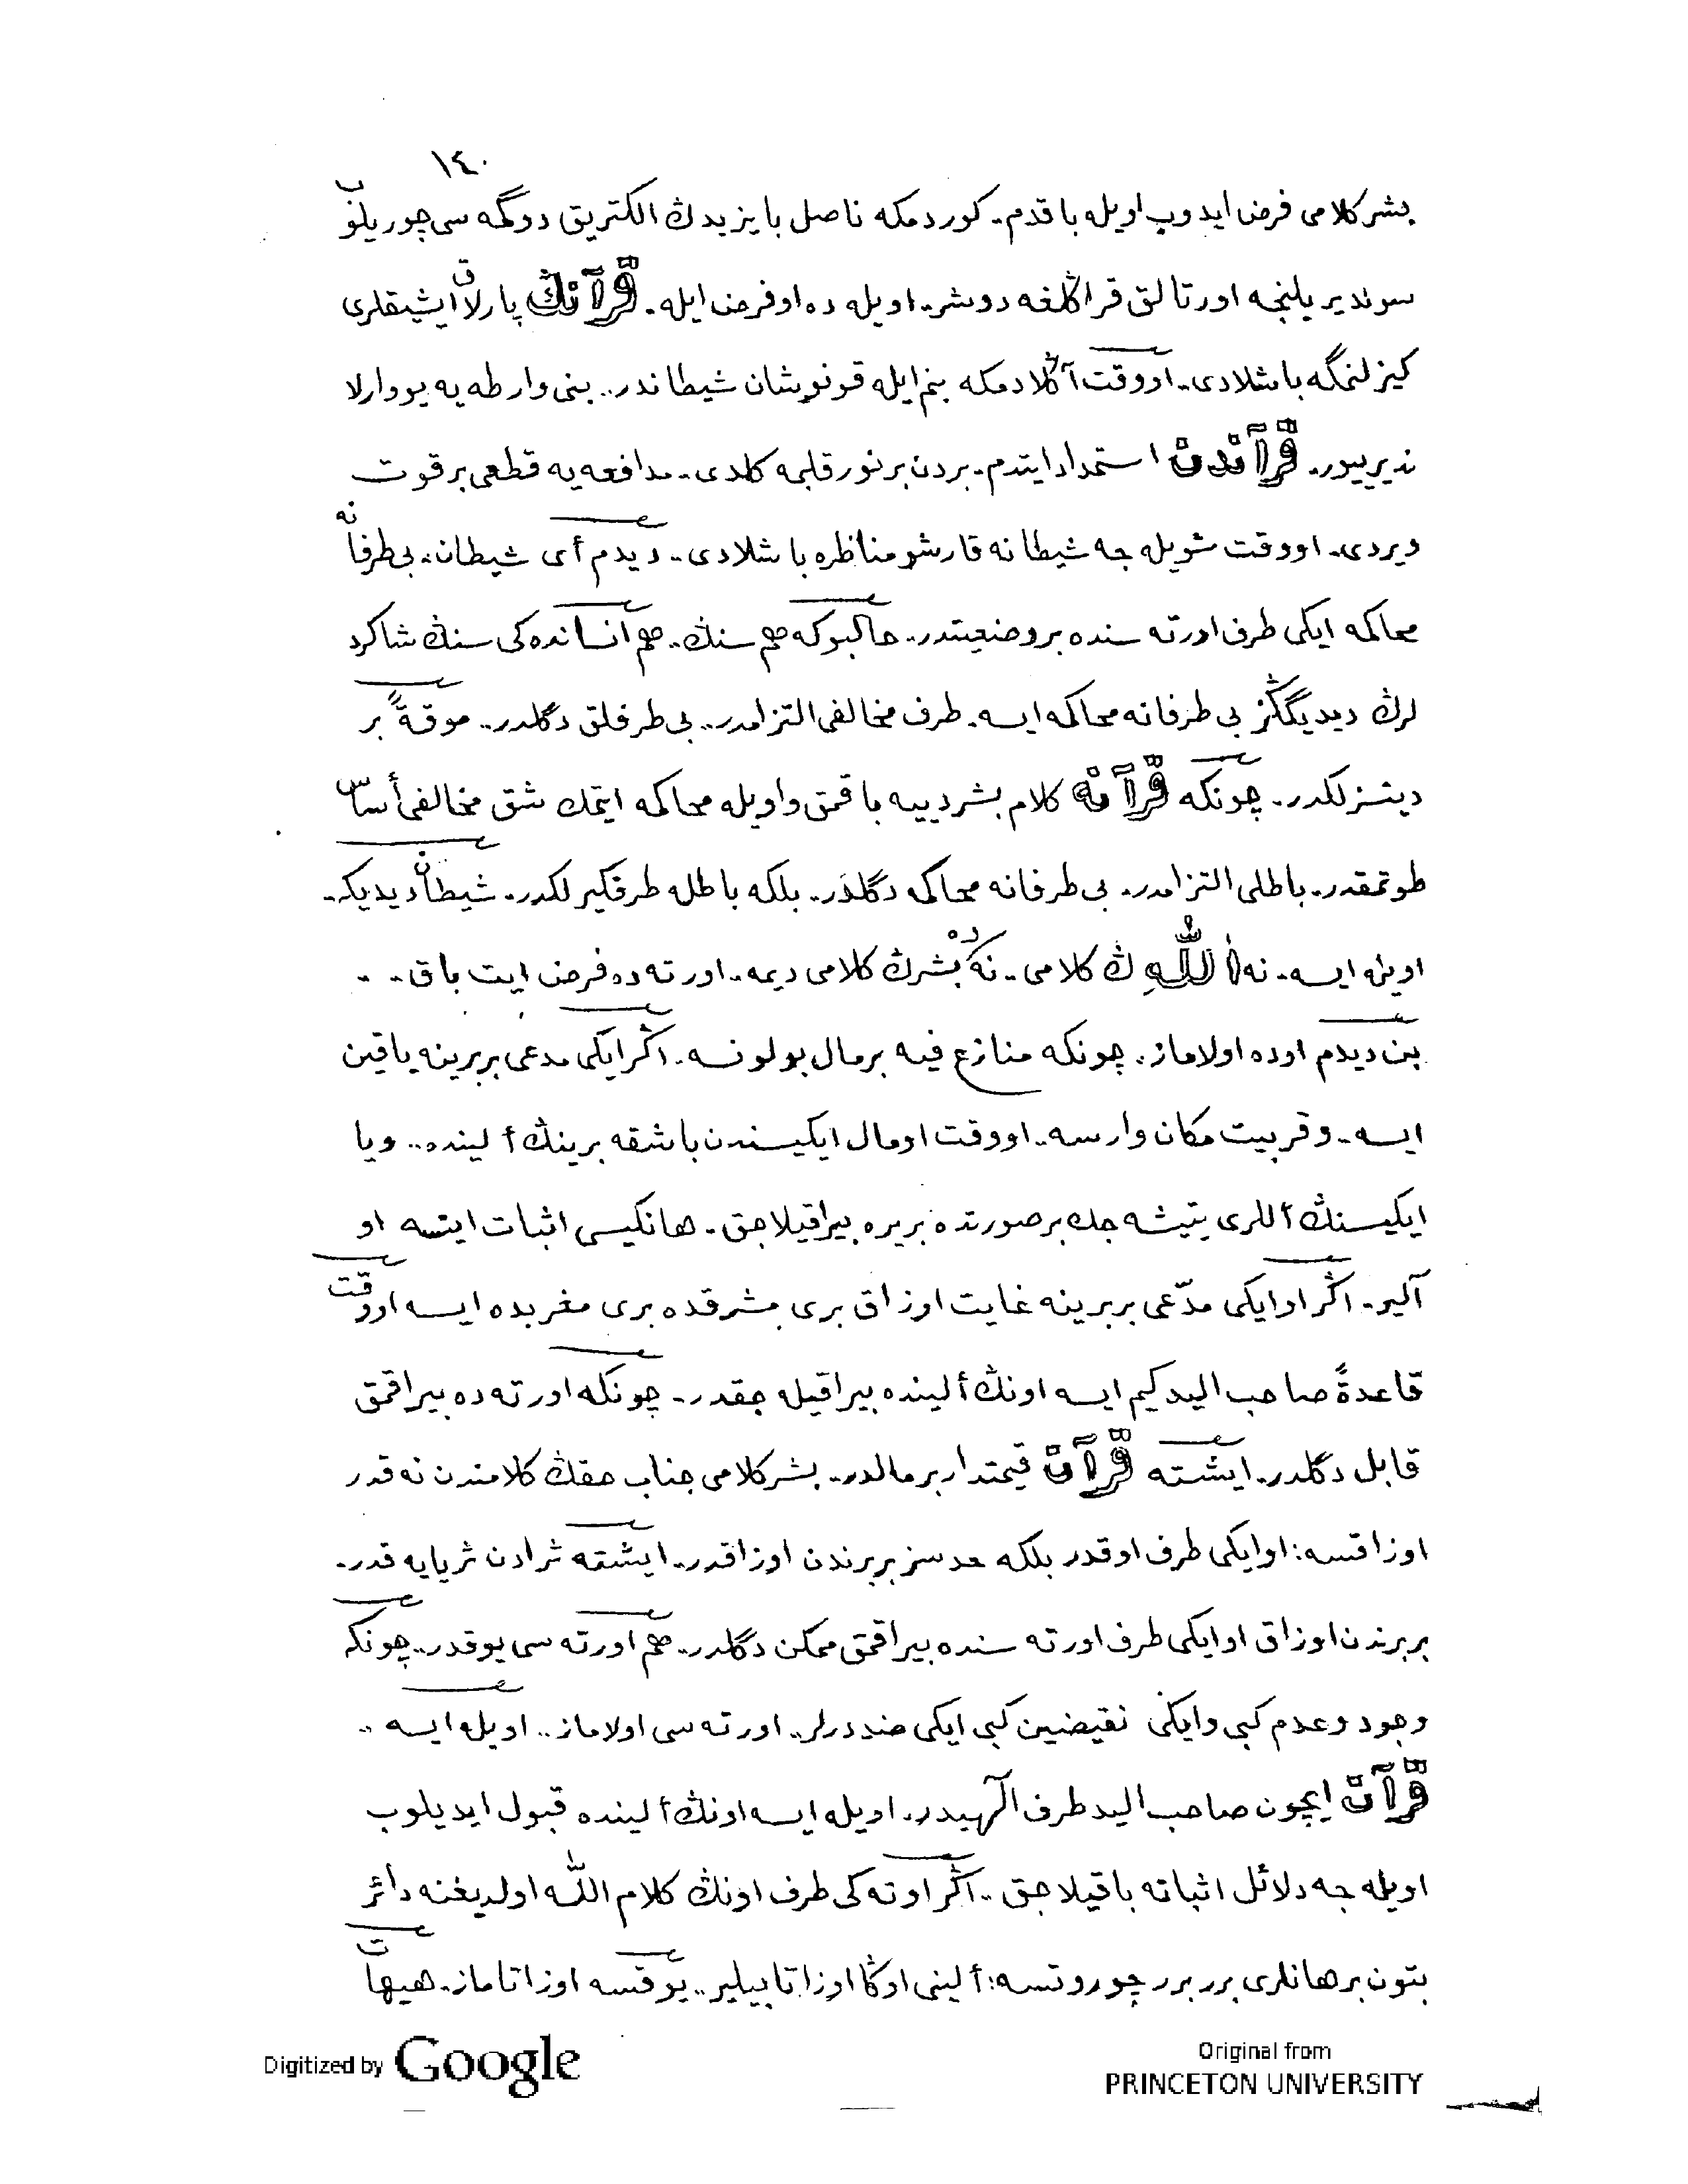 ١٤٠
بشر كلامى فرض ايدوب اويله باقدم. كوردمكه ناصل بايزيدڭ الكتريق دوگمه سى چوريلوب
سونديريلنجه اورتالق قراڭلغه دوشر. اويله ده او فرض ايله. قرآنڭ پارلاق ايشيقلرى
كيزلنمگه باشلادى.. او وقت آڭلادمكه بنم ايله قونوشان شيطاندر.. بنى وارطه يه يووارلا
نديرييور. قرآندن استمداد ايتدم. بردن بر نور قلبمه كلدى.. مدافعه يه قطعى بر قوت
ويردى. او وقت شويله جه شيطانه قارشو مناظره باشلادى.. ديدم أى شيطان.. بى طرفانه
محاكمه ايكى طرف اورته سنده بر وضعيتدر. حالبوكه هم سنڭ. هم انسانده كى سنڭ شاكرد
لرڭ ديديگڭز بى طرفانه محاكمه ايسه. طرف مخالفى التزامدر.. بى طرفلق دگلدر.. موقةً بر
دينسزلكدر. چونكه قرآنه كلام بشر دييه باقمق و اويله محاكمه ايتمك شق مخالفى أساس
طوتمقدر. باطلى التزامدر. بى طرفانه محاكمه دگلدر. بلكه باطله طرفگيرلكدر. شيطان ديديكه.
اويله ايسه. نه اللّٰه ڭ كلامى. نه ده بشرڭ كلامى ديمه.. اورته ده فرض ايت باق. .
بن ديدم اوده اولاماز. چونكه منازع فيه بر مال بولونسه. اڭر ايكى مدعى بربرينه ياقين
ايسه. و قربيت مكان وارسه.. او وقت اومال ايكيسندن باشقه برينڭ ألينده.. ويا
ايكيسنڭ أللرى يتيشه جك بر صورتده بر يره بيراقيلاجق. هانكيسى اثبات ايتسه او
آلير. اڭر او ايكى مدّعى بربرينه غايت اوزاق برى مشرقده برى مغربده ايسه او وقت
قاعدةً صاحب اليد كيم ايسه اونڭ ألينده بيراقيله جقدر.. چونكه اورته ده بيراقمق
قابل دگلدر. ايشته قرآن قيمتدار بر مالدر. بشر كلامى جناب حقڭ كلامندن نه قدر
اوزاقسه: او ايكى طرف اوقدر بلكه حدسز بربرندن اوزاقدر. ايشته ثرادن ثريايه قدر.
بربرندن اوزاق او ايكى طرف اورته سنده بيراقمق ممكن دگلدر.. هم اورته سى يوقدر.. چونكه
وجود وعدم كبى و ايكى نقيضين كبى ايكى ضددرلر.. اورته سى اولاماز.. اويله ايسه ..
قرآن ايچون صاحب اليد طرف الٓهيدر. اويله ايسه اونڭ ألينده قبول ايديلوب
اويله جه دلائل اثباته باقيلاجق.. اڭر اوته كى طرف اونڭ كلام اللّٰه اولديغنه دائر
بتون برهانلرى برر برر چوروتسه: ألينى اوڭا اوزاتابيلير.. يوقسه اوزاتاماز. هيهات
Digitized by Google
Original from
PRINCETON UNIVERSITY